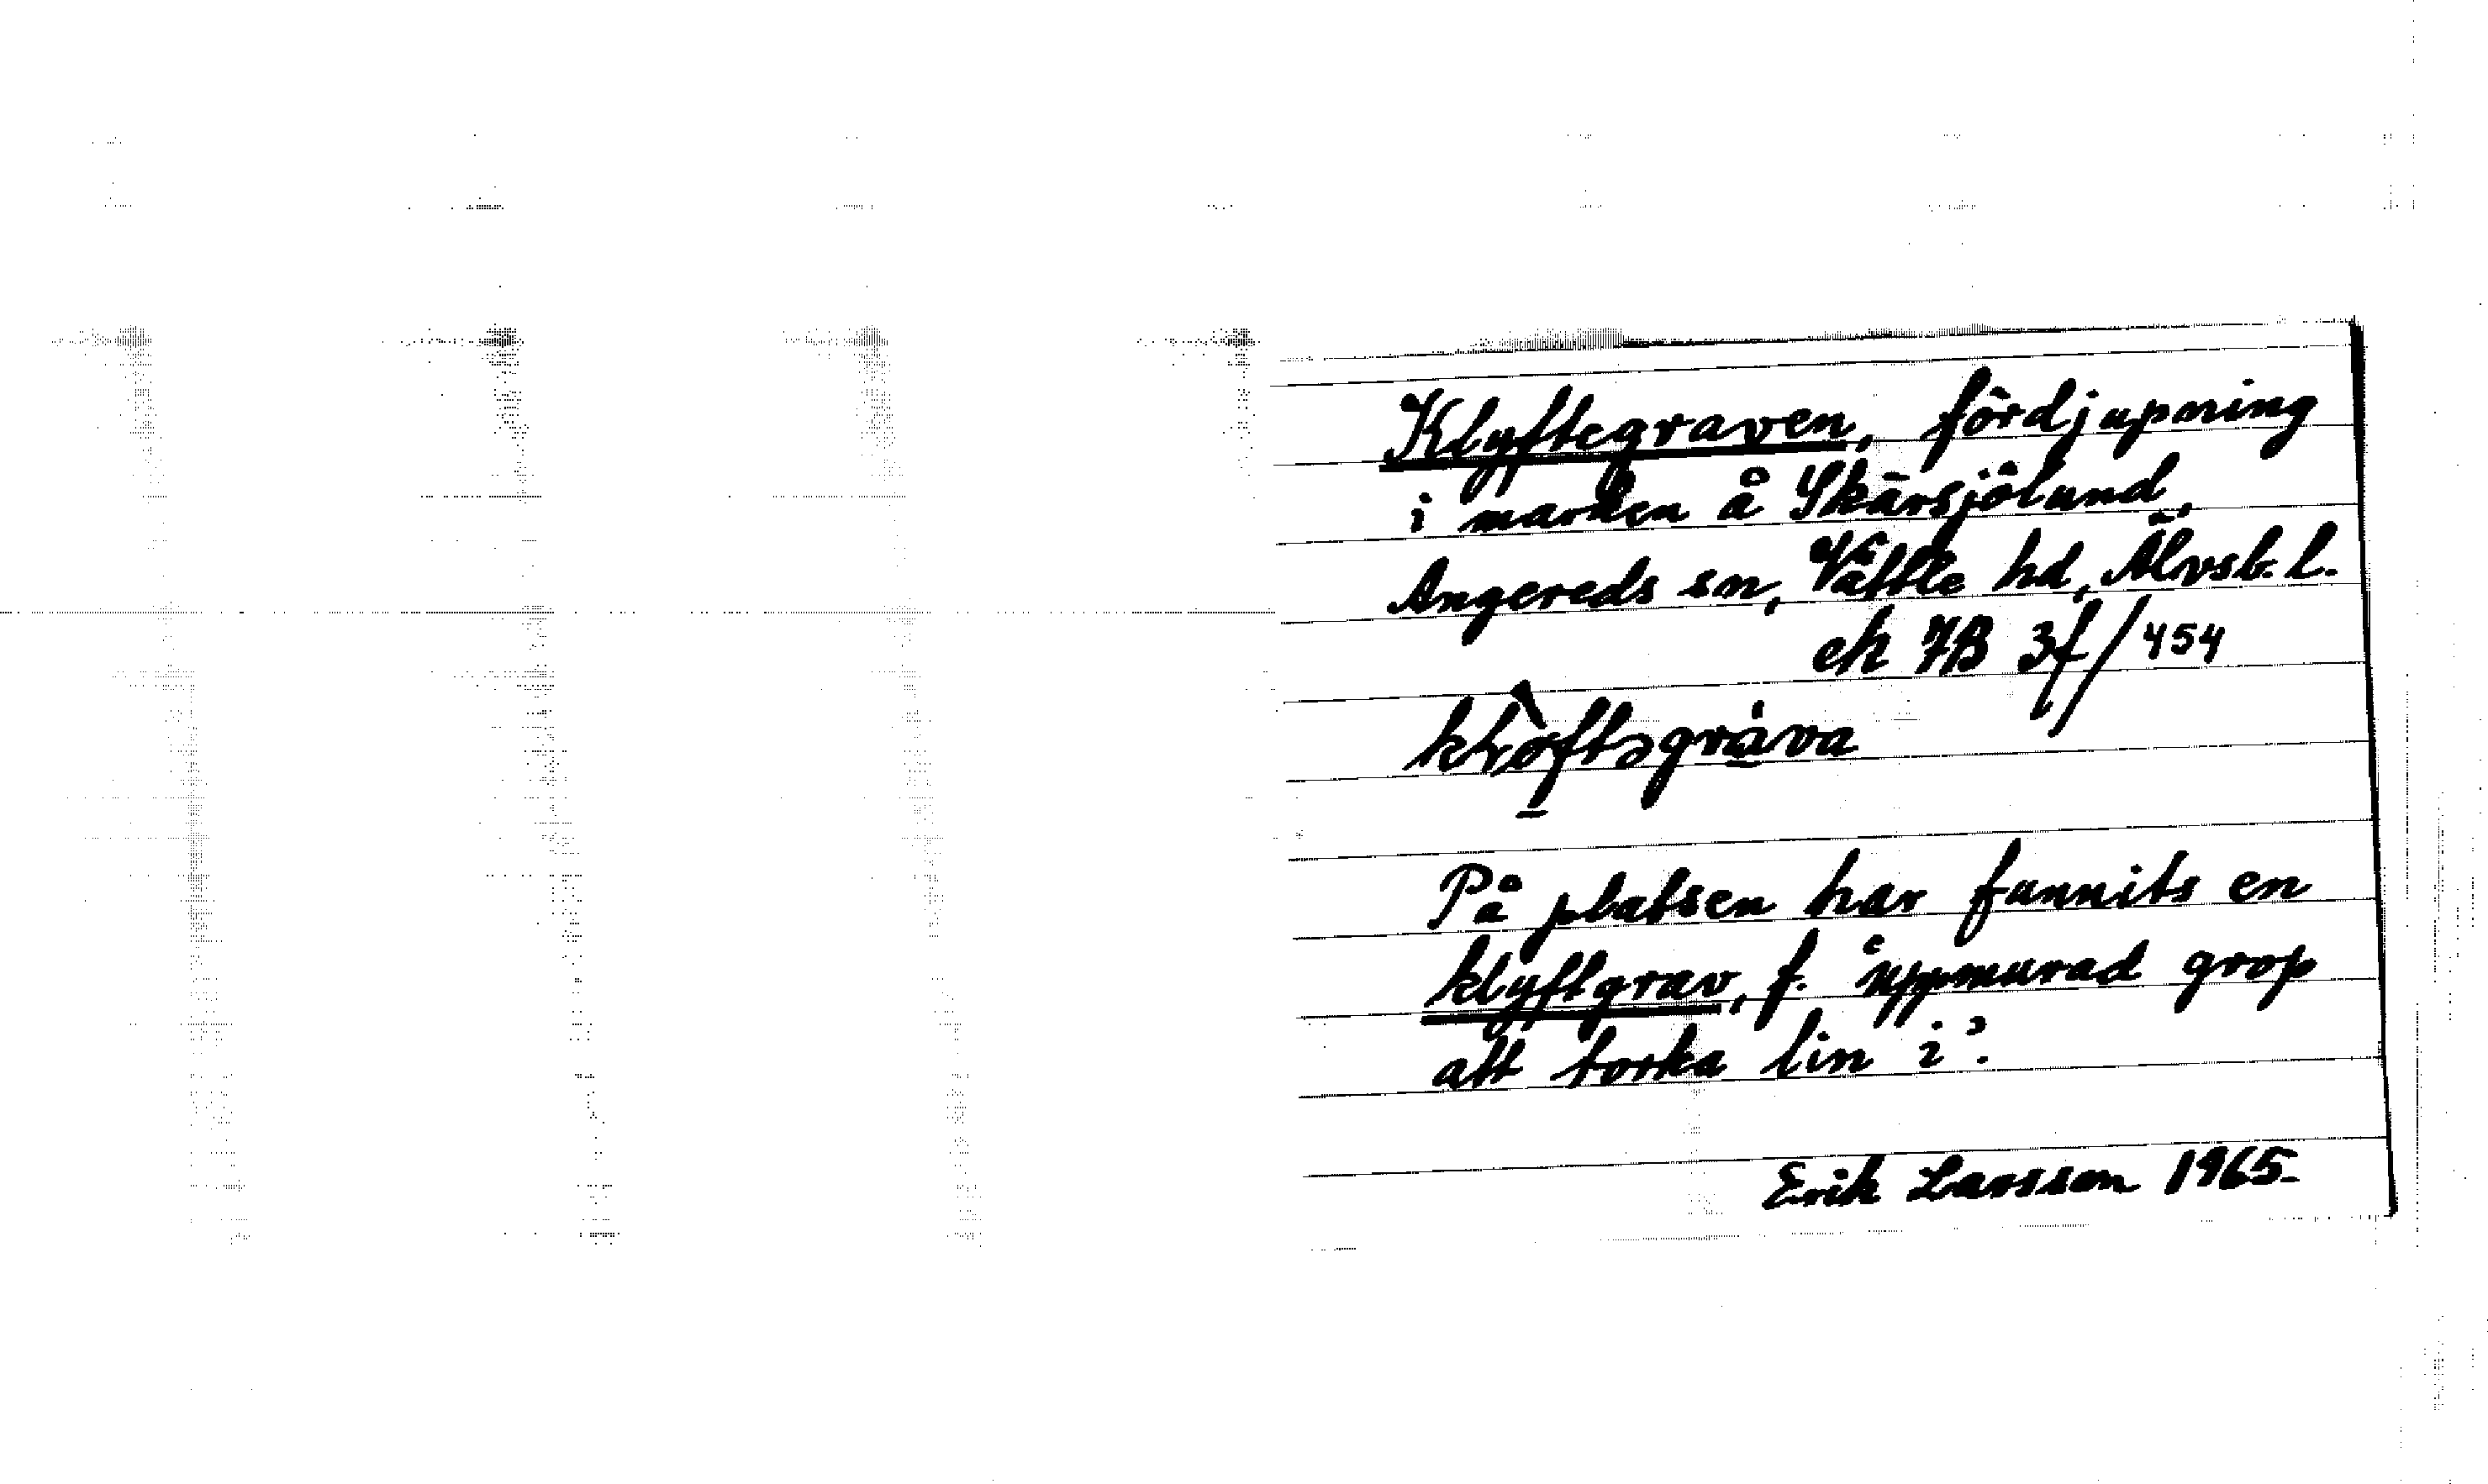 Klyftegraven, fördjupning
i marken å Skärsjölund,
Angereds sn, Vättle hd, Älvsb. l.
ek 7B 3f/454
På platsen har funnits en
klyftgrav, f. 'uppmurad grop
att torka lin i'.
Erik Larsson 1965.